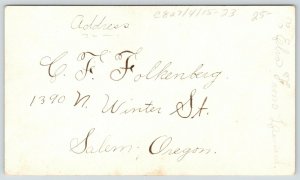 Address
25-
C. F. Folkenberg.
1390 N. Winter St.
Salem, Oregon.